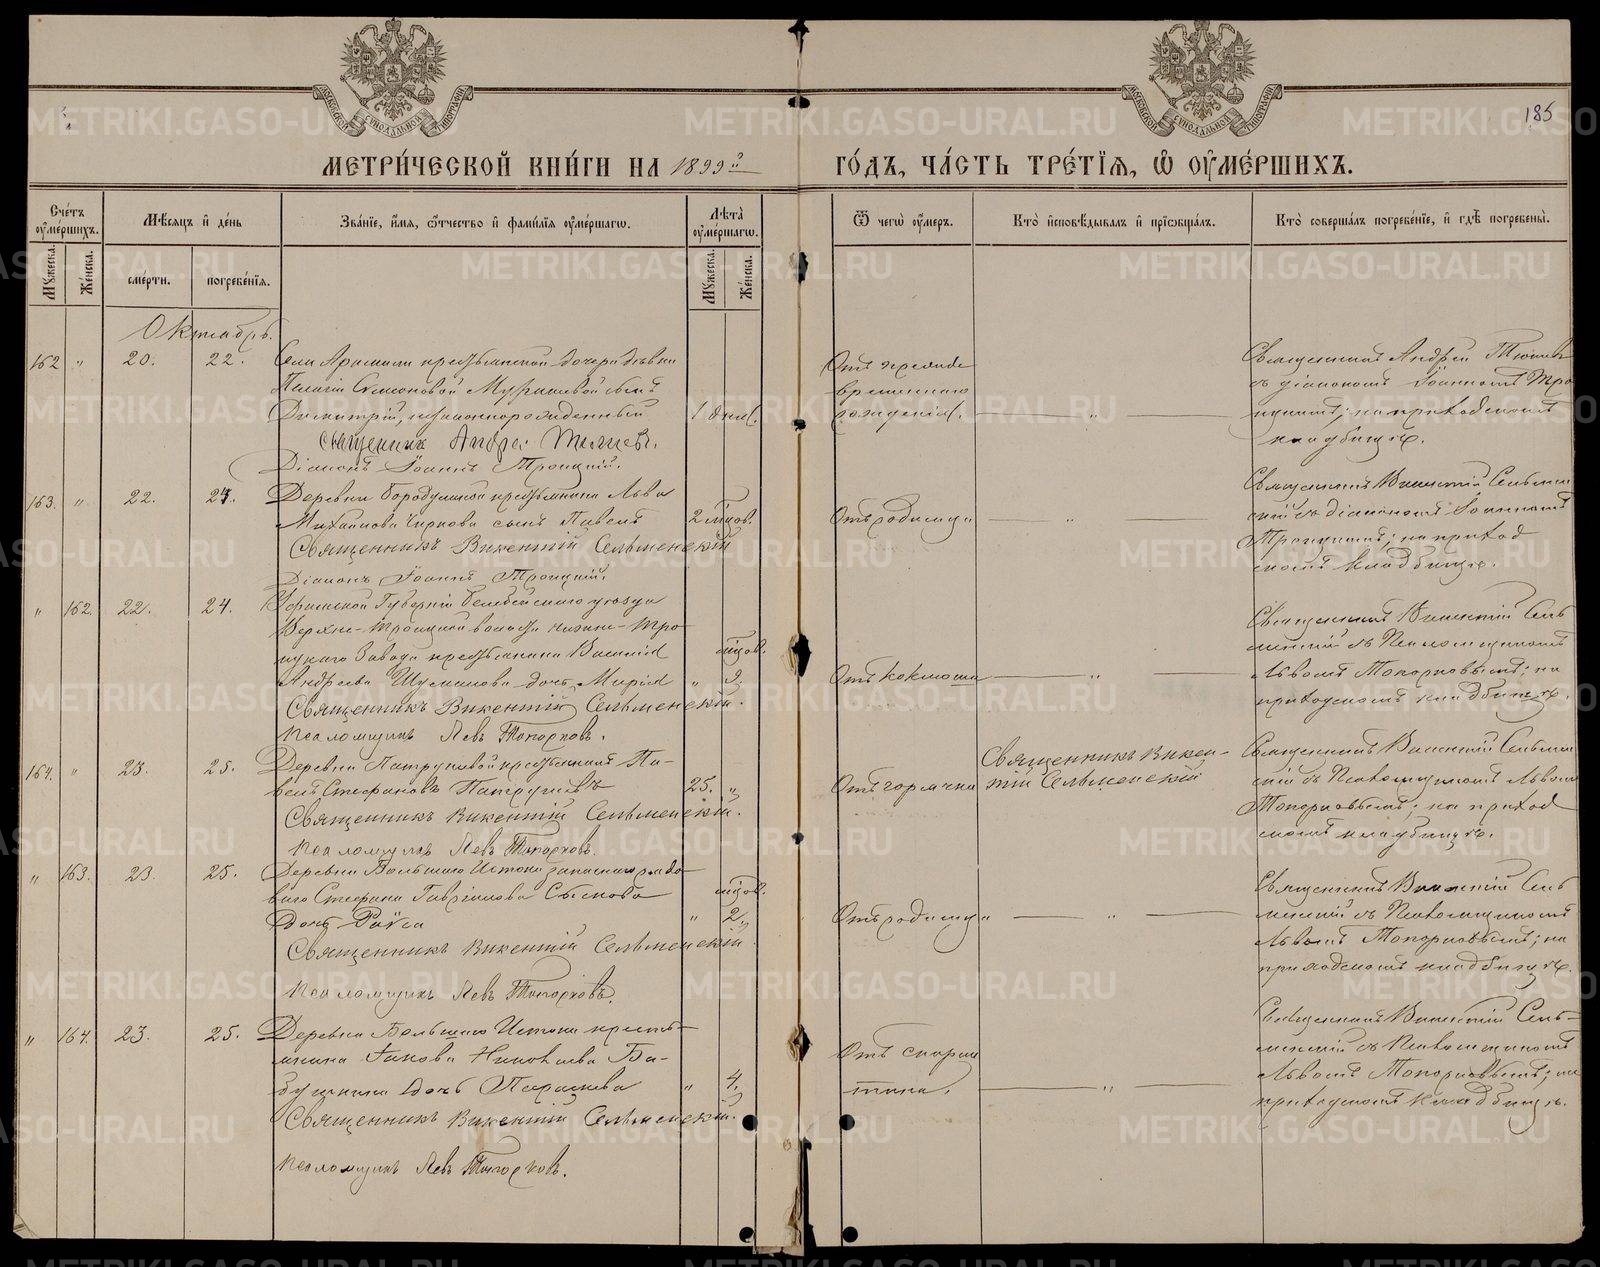 МОСКОВСКОЙ СѴНОДАЛЬНОЙ ТИПОГРАФІИ
МОСКОВСКОЙ СѴНОДАЛЬНОЙ ТИПОГРАФІИ
185
МЕТРИ́ЧЕСКОЙ КНИ́ГИ НА 1899й ГО́ДЪ, ЧА́СТЬ ТРЕ́ТІЯ, Ѽ ОУ҆МЕ́РШИХЪ.
Сче́тъ оу҆ме́ршихъ.
Мѣ́сяцъ и҆ де́нь
Зва́нїе, и҆́мя, ѻ҆́тчество и҆ фами́лїя оу҆ме́ршагѡ.
Лѣ́та оу҆ме́ршагѡ.
Ѿ чегѡ̀ оу҆́меръ.
Кто̀ и҆сповѣ́дывалъ и҆ прїѡбща́лъ.
Кто̀ соверша́лъ погребе́нїе, и҆ гдѣ̀ погребены̀.
Мꙋ́жеска. Же́нска. сме́рти. погребе́нїя. Мꙋ́жеска. Же́нска.
Октябрь.
162 " 20. 22. Села Арамили крестьянской дочери дѣвки
Пелагіи Симоновой сынъ
Димитрій, незаконнорожденный 1 дня.
Священникъ Андрей Тюшевъ.
Діаконъ Іоаннъ Троицкій.
Отъ преждевременнаго
рожденія. — " —
Священникъ Андрей Тюшевъ
съ діакономъ Іоанномъ Троицкимъ; на приходскомъ
кладбищѣ.
163. " 22. 24. Деревни Бородулиной крестьянина Льва
Михаилова Чиркова сынъ Павелъ 2 мѣсяцов.
Священникъ Викентій Сельменскій
Діаконъ Іоаннъ Троицкій.
Отъ родимца — " —
Священникъ Викентій Сельменскій съ діакономъ Іоанномъ
Троицкимъ; на приходскомъ кладбищѣ.
" 162. 22. 24. Уфимской Губерніи Белебейскаго уѣзда
Верхне-Троицкой волости Нижне-Троицкаго Завода крестьянина Василія
Андреева Шумилова дочь Марія " 9. мѣсяцов.
Священникъ Викентій Сельменскій.
Псаломщикъ Левъ Топорковъ.
Отъ коклюша — " —
Священникъ Викентій Сельменскій съ Псаломщикомъ
Львомъ Топорковымъ; на
приходскомъ кладбищѣ.
164. " 23. 25. Деревни Патрушевой крестьянинъ Павелъ Стефановъ Патрушевъ 25. "
Священникъ Викентій Сельменскій.
Псаломщикъ Левъ Топорковъ.
Отъ горячки
Священникъ Викентій Сельменскій
Священникъ Викентій Сельменскій съ Псаломщикомъ Львомъ
Топорковымъ; на приходскомъ кладбищѣ.
" 163. 23. 25. Деревни Большаго Истока запаснаго рядоваго Стефана Гавріилова Сыскова
дочь Раиса " 2. мѣсяцов.
Священникъ Викентій Сельменскій
Псаломщикъ Левъ Топорковъ.
Отъ родимца — " —
Священникъ Викентій Сельменскій съ Псаломщикомъ
Львомъ Топорковымъ; на
приходскомъ кладбищѣ.
" 164. 23. 25. Деревни Большаго Истока крестьянина Іакова Николаева Бабушкина дочь Параскева " 4.
Священникъ Викентій Сельменскій.
Псаломщикъ Левъ Топорковъ.
Отъ скарлатина. — " —
Священникъ Викентій Сельменскій съ Псаломщикомъ
Львомъ Топорковымъ; на
приходскомъ кладбищѣ.
METRIKI.GASO-URAL.RU